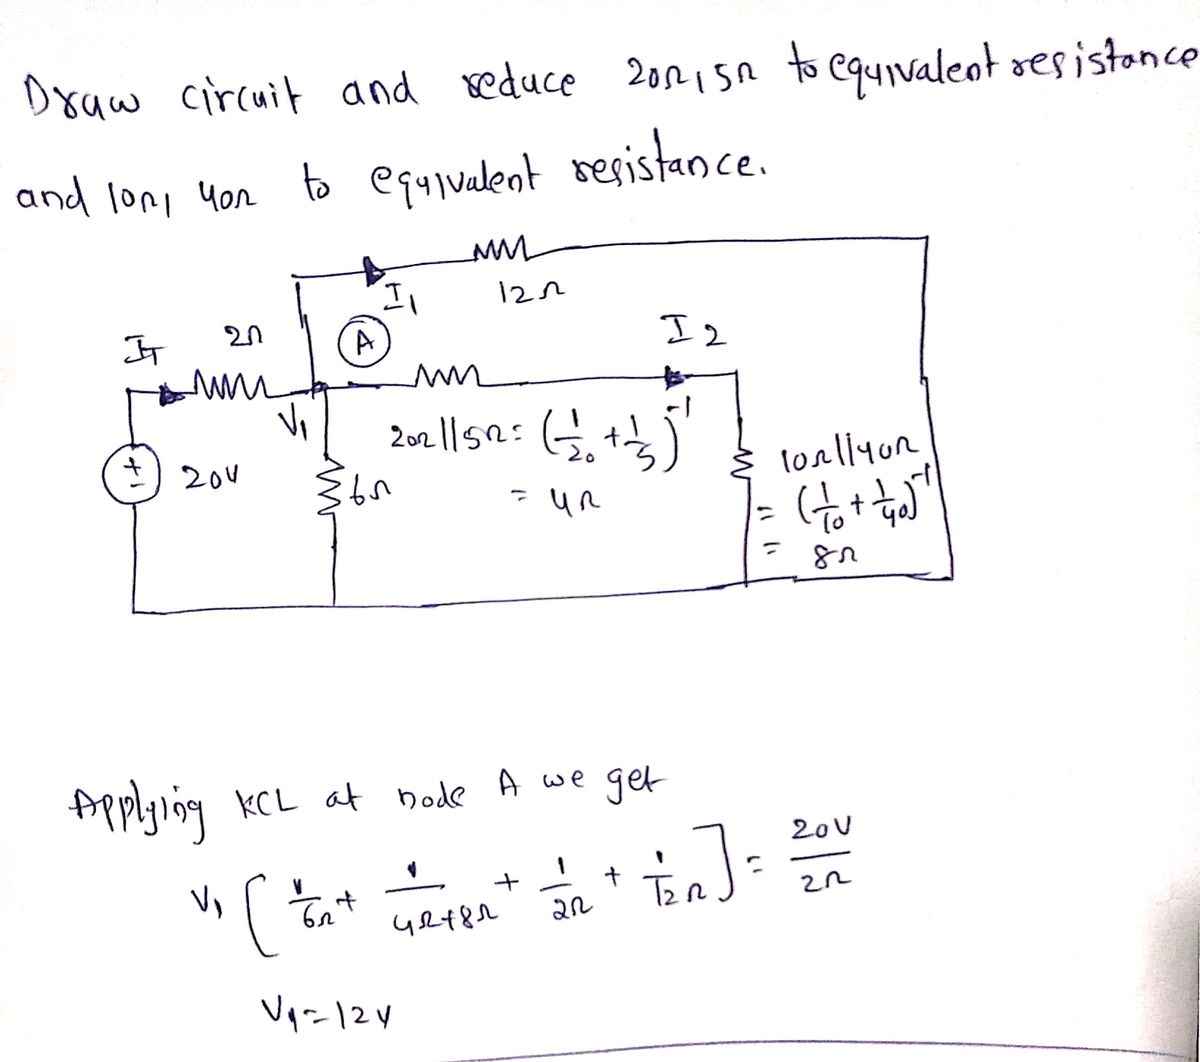 Draw circuit and reduce 20Ω, 5Ω to equivalent resistance
and 10Ω, 40Ω to equivalent resistance.
I1
12Ω
IT 2Ω
A
I2
V1
20Ω||5Ω = (1/20 + 1/5)^-1
= 4Ω
+
-
20V
6Ω
10Ω||40Ω
= (1/10 + 1/40)^-1
= 8Ω
Applying KCL at node A we get
V1 [ 1/6Ω + 1/4Ω+8Ω + 1/2Ω + 1/12Ω ] = 20V/2Ω
V1 = 12V